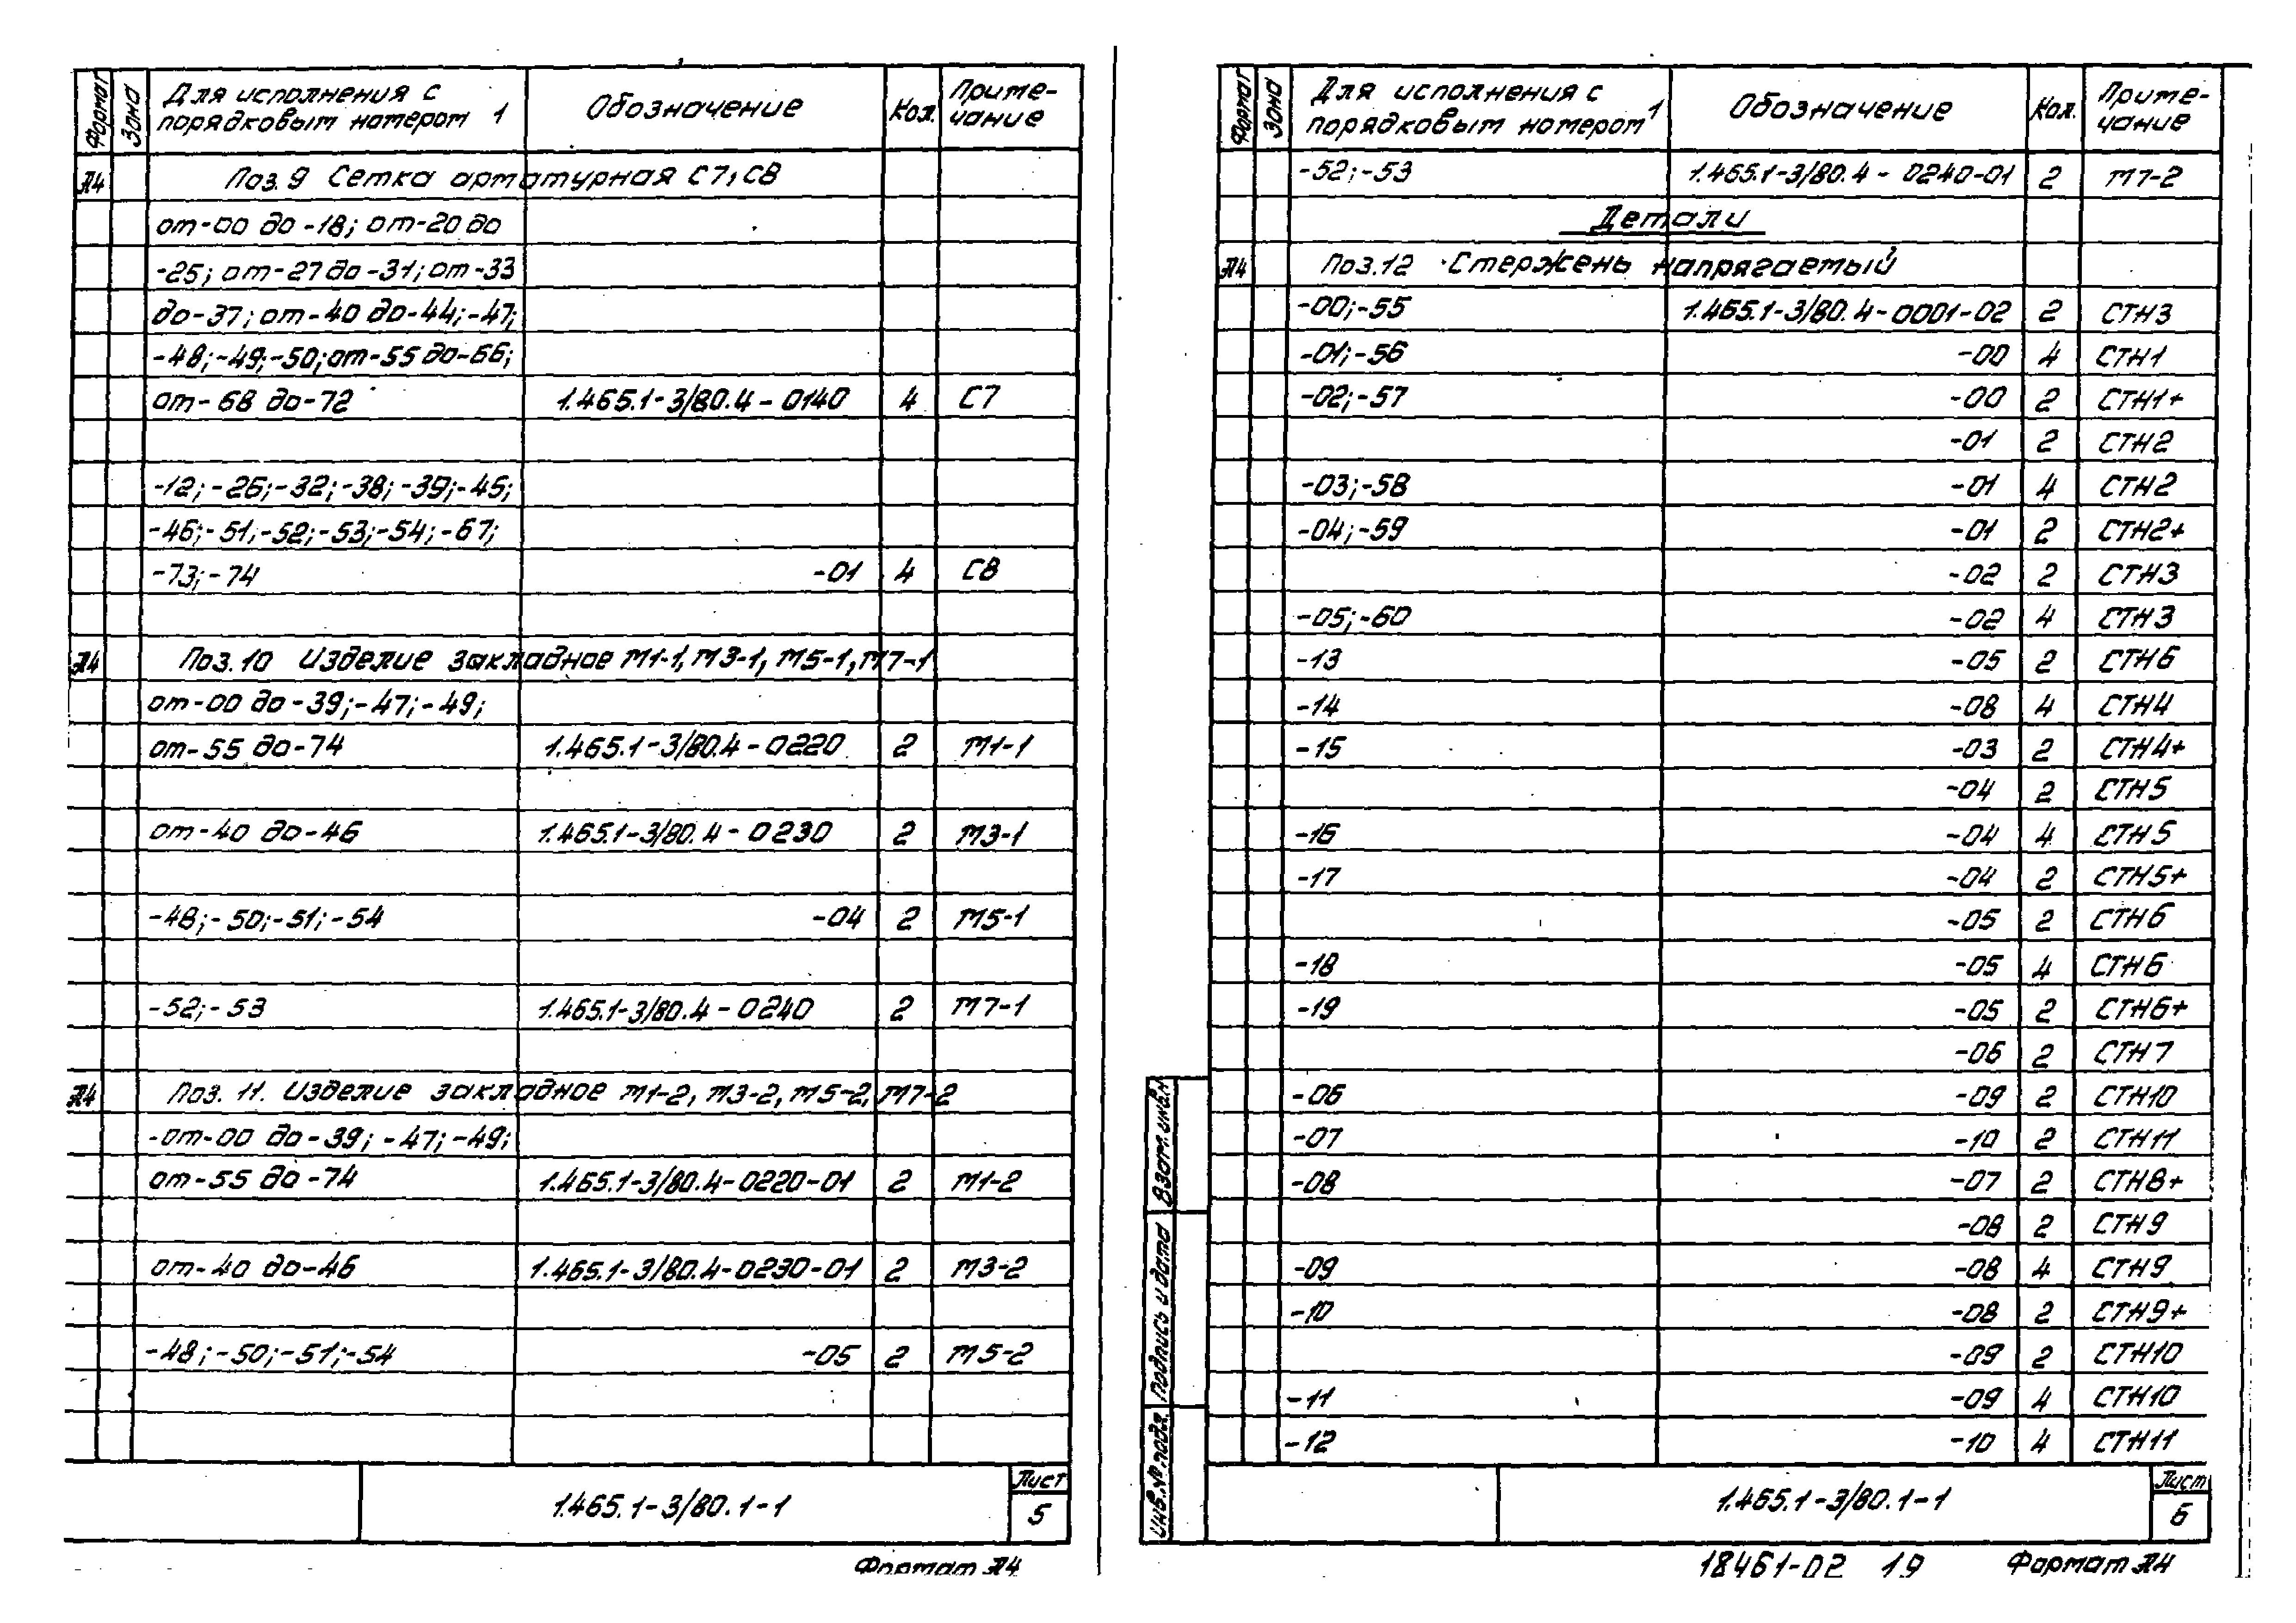 Формат Зона Для исполнения с порядковым номером 1 Обозначение Кол. Приме-чание
А4 Поз. 9 Сетка арматурная С7, С8
от-00 до -18; от-20 до
-25; от-27 до -31; от-33
до-37; от-40 до-44; -47;
-48; -49; -50; от-55 до-66;
от-68 до-72 1.465.1-3/80.4-0140 4 С7
-12; -26; -32; -38; -39; -45;
-46; -51; -52; -53; -54; -67;
-73; -74 -01 4 С8
А4 Поз. 10 Изделие закладное М1-1, М3-1, М5-1, М7-1
от-00 до-39; -47; -49;
от-55 до-74 1.465.1-3/80.4-0220 2 М1-1
от-40 до-46 1.465.1-3/80.4-0230 2 М3-1
-48; -50; -51; -54 -04 2 М5-1
-52; -53 1.465.1-3/80.4-0240 2 М7-1
А4 Поз. 11. Изделие закладное М1-2, М3-2, М5-2, М7-2
-от-00 до-39; -47; -49;
от-55 до-74 1.465.1-3/80.4-0220-01 2 М1-2
от-40 до-46 1.465.1-3/80.4-0230-01 2 М3-2
-48; -50; -51; -54 -05 2 М5-2
1.465.1-3/80.1-1 Лист 5
Формат А4
Формат Зона Для исполнения с порядковым номером 1 Обозначение Кол. Приме-чание
-52; -53 1.465.1-3/80.4-0240-01 2 М7-2
Детали
А4 Поз. 12 Стержень напрягаемый
-00; -55 1.465.1-3/80.4-0001-02 2 СТН3
-01; -56 -00 4 СТН1
-02; -57 -00 2 СТН1+
-01 2 СТН2
-03; -58 -01 4 СТН2
-04; -59 -01 2 СТН2+
-02 2 СТН3
-05; -60 -02 4 СТН3
-13 -05 2 СТН6
-14 -08 4 СТН4
-15 -03 2 СТН4+
-04 2 СТН5
-16 -04 4 СТН5
-17 -04 2 СТН5+
-05 2 СТН6
-18 -05 4 СТН6
-19 -05 2 СТН6+
-06 2 СТН7
-06 -09 2 СТН10
-07 -10 2 СТН11
-08 -07 2 СТН8+
-08 2 СТН9
-09 -08 4 СТН9
-10 -08 2 СТН9+
-09 2 СТН10
-11 -09 4 СТН10
-12 -10 4 СТН11
Взам. инв. №
Подпись и дата
Инв. № подл.
1.465.1-3/80.1-1 Лист 6
18461-02 19 Формат А4